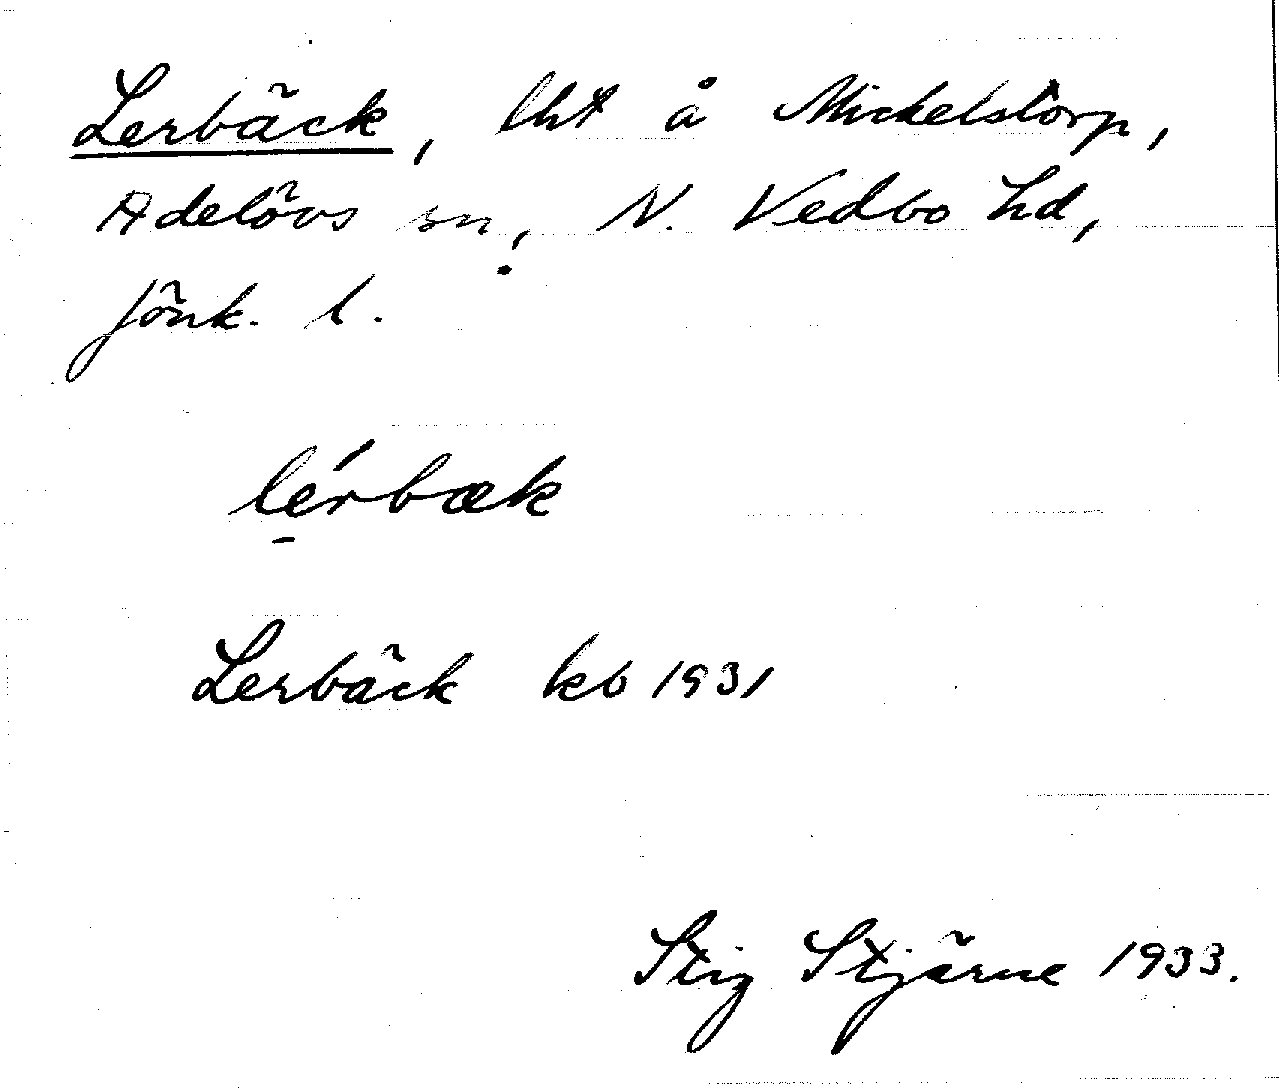 Lerbäck, lht å Mickelstorp,
Adelövs sn, N. Vedbo hd,
Jönk. l.
lérbæk
Lerbäck kb 1931
Stig Stjärne 1933.